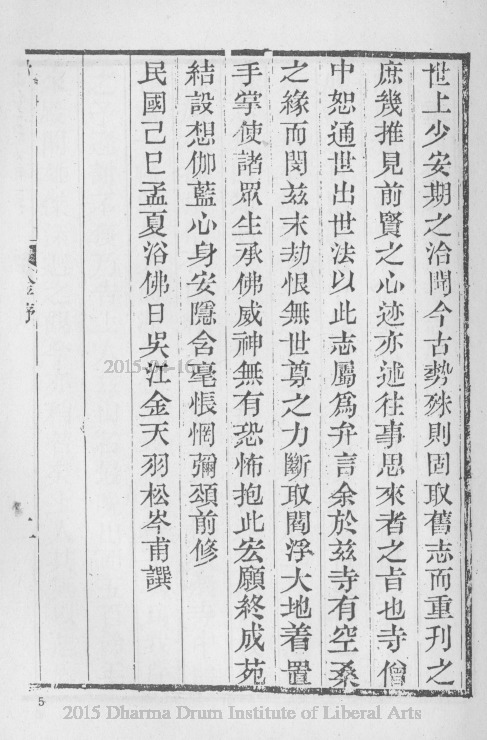 世上少安期之治聞今古勢殊則固取舊志而重刊之
庶幾推見前賢之心迹亦述往事思來者之旨也寺僧
中恕通世出世法以此志屬爲弁言余於兹寺有空桑
之緣而閔兹末劫恨無世尊之力斷取閻浮大地着置
手掌使諸眾生承佛威神無有恐怖抱此宏願終成苑
結設想伽藍心身安隱含毫悵惘彌頌前修
民國己巳孟夏浴佛日吳江金天羽松岑甫譔
金序
5
2015 Dharma Drum Institute of Liberal Arts